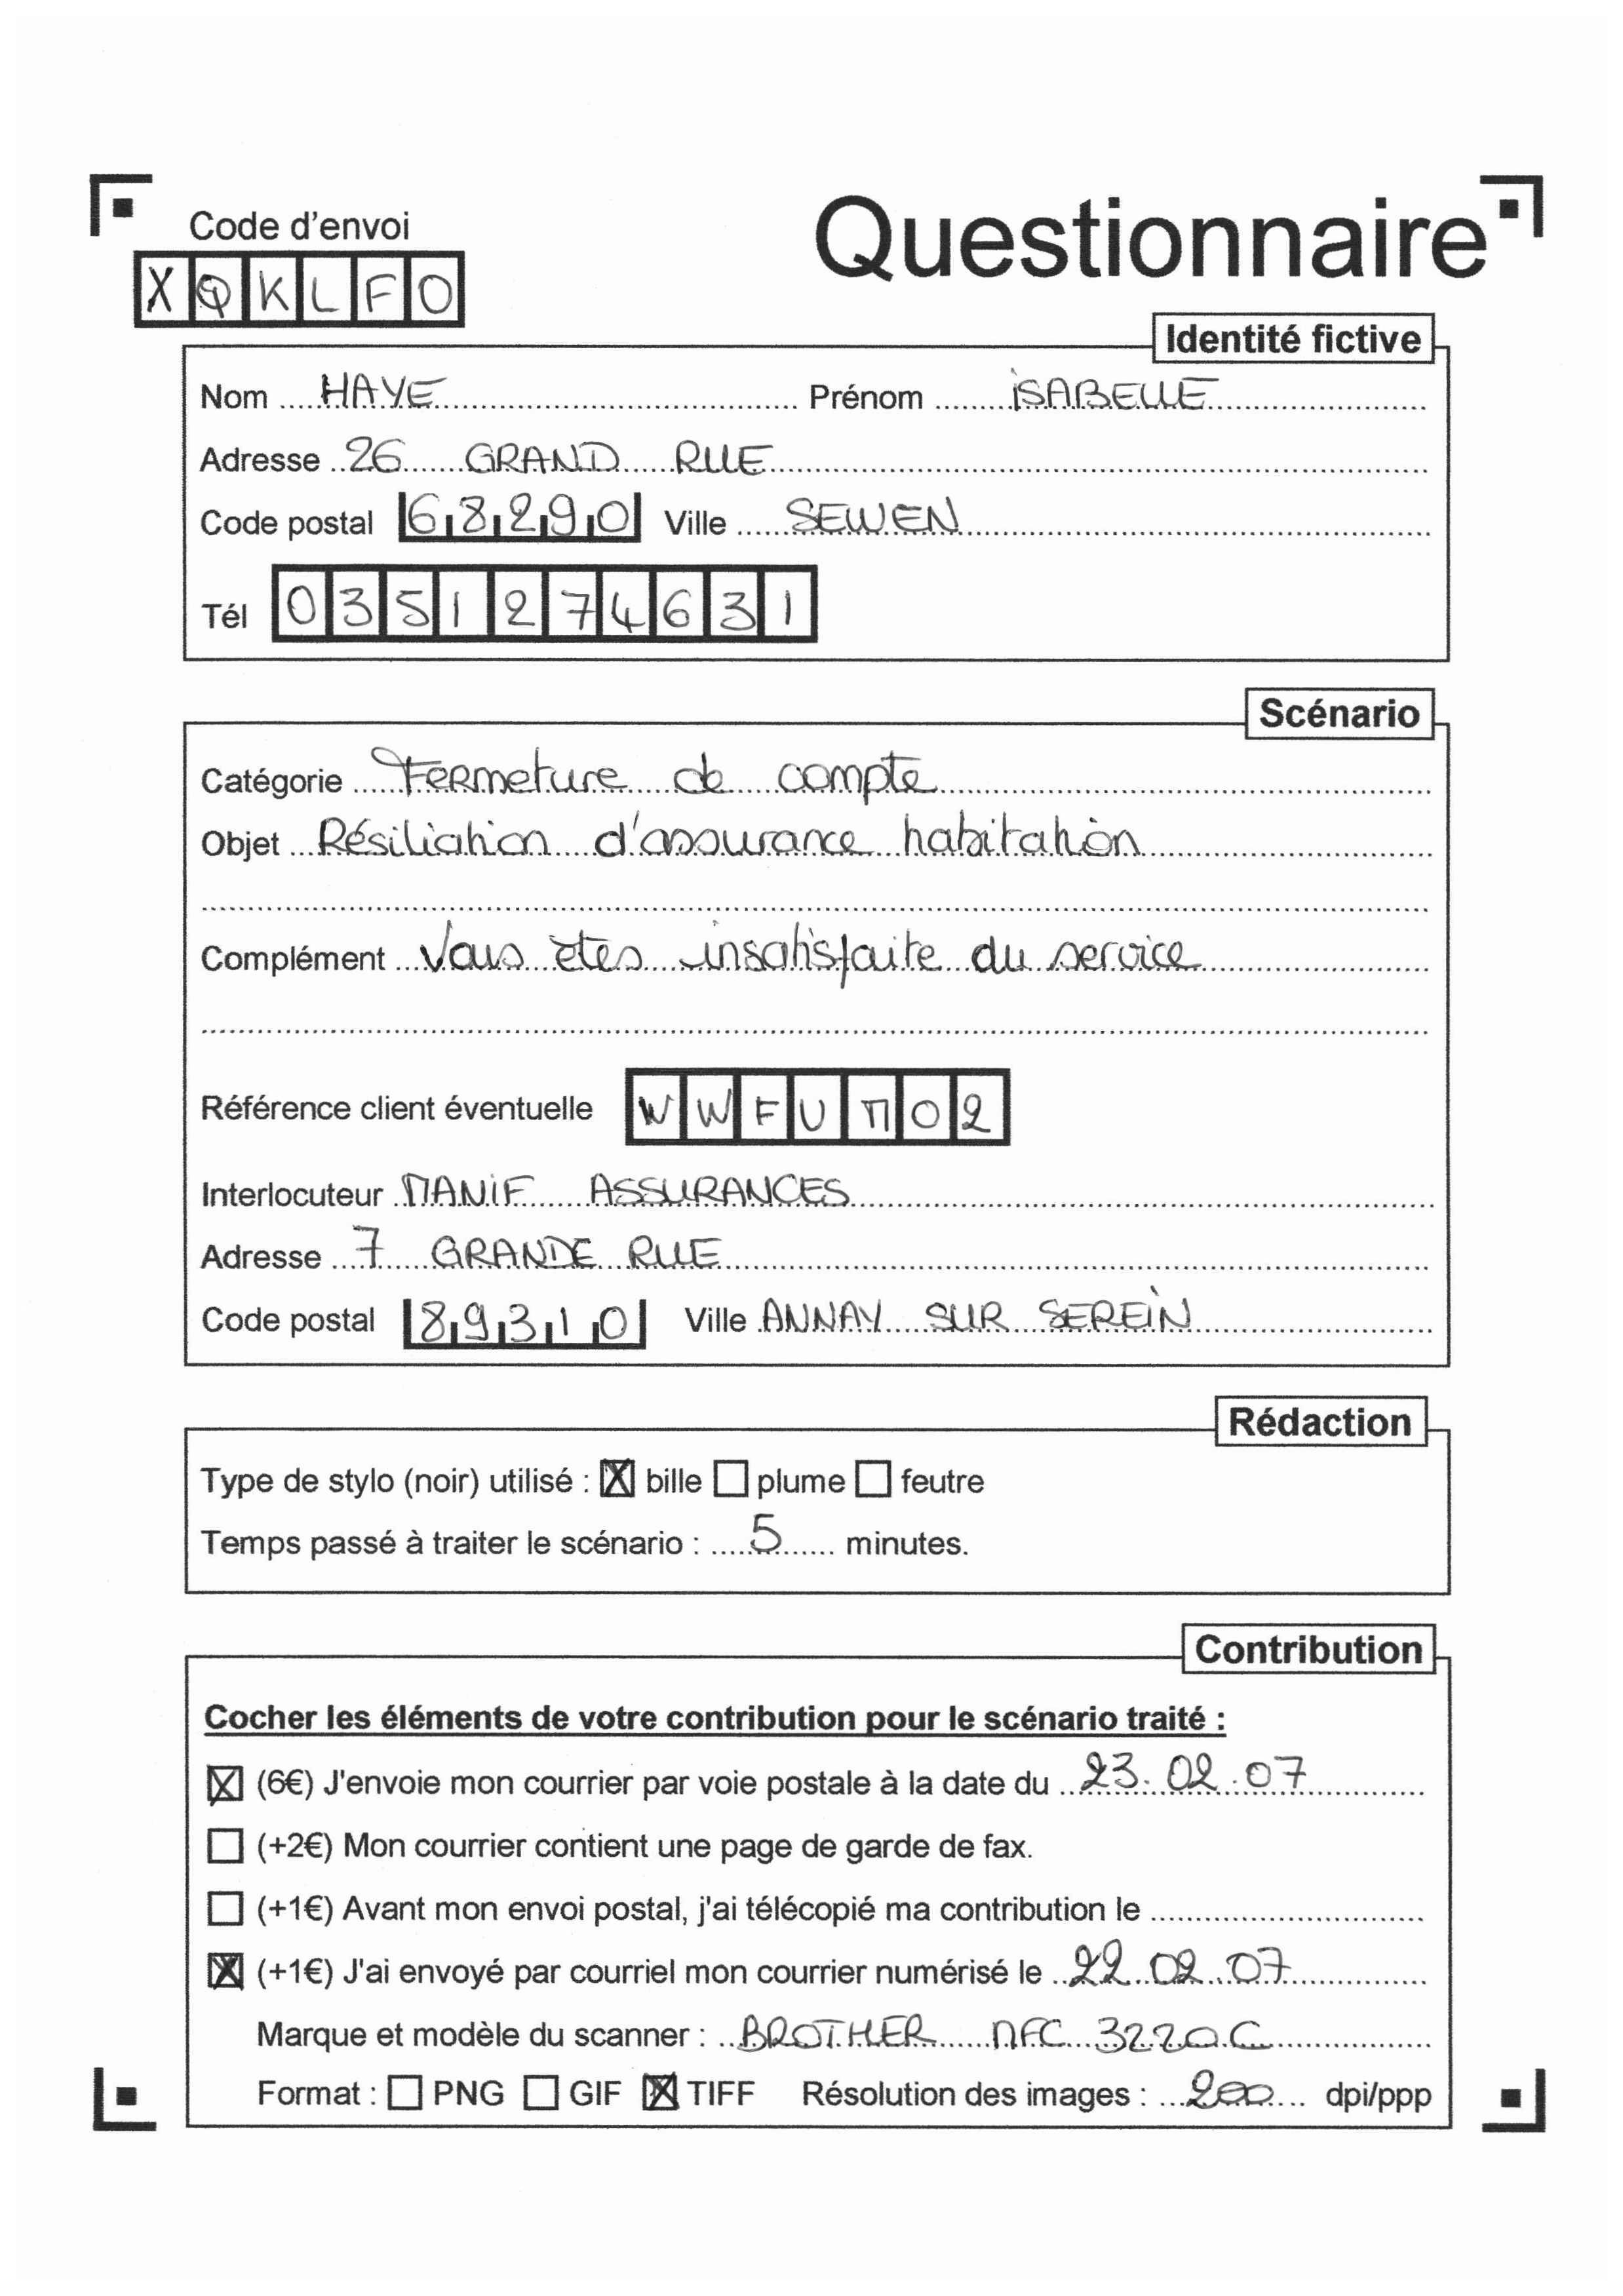 Code d'envoi
Questionnaire
XQKLFO
Identité fictive
Nom HAYE Prénom ISABELLE
Adresse 26 GRAND RUE
Code postal 68290 Ville SEWEN
Tél 0351274631
Scénario
Catégorie Fermeture de compte
Objet Résiliation d'assurance habitation
Complément Vous êtes insatisfaite du service
Référence client éventuelle WWFUM02
Interlocuteur MANIF ASSURANCES
Adresse 7 GRANDE RUE
Code postal 89310 Ville ANNAY SUR SEREIN
Rédaction
Type de stylo (noir) utilisé : ☒ bille ☐ plume ☐ feutre
Temps passé à traiter le scénario : 5 minutes.
Contribution
Cocher les éléments de votre contribution pour le scénario traité :
☒ (6€) J'envoie mon courrier par voie postale à la date du 23.02.07
☐ (+2€) Mon courrier contient une page de garde de fax.
☐ (+1€) Avant mon envoi postal, j'ai télécopié ma contribution le
☒ (+1€) J'ai envoyé par courriel mon courrier numérisé le 22.02.07
Marque et modèle du scanner : BROTHER MFC 3220C
Format : ☐ PNG ☐ GIF ☒ TIFF Résolution des images : 200 dpi/ppp